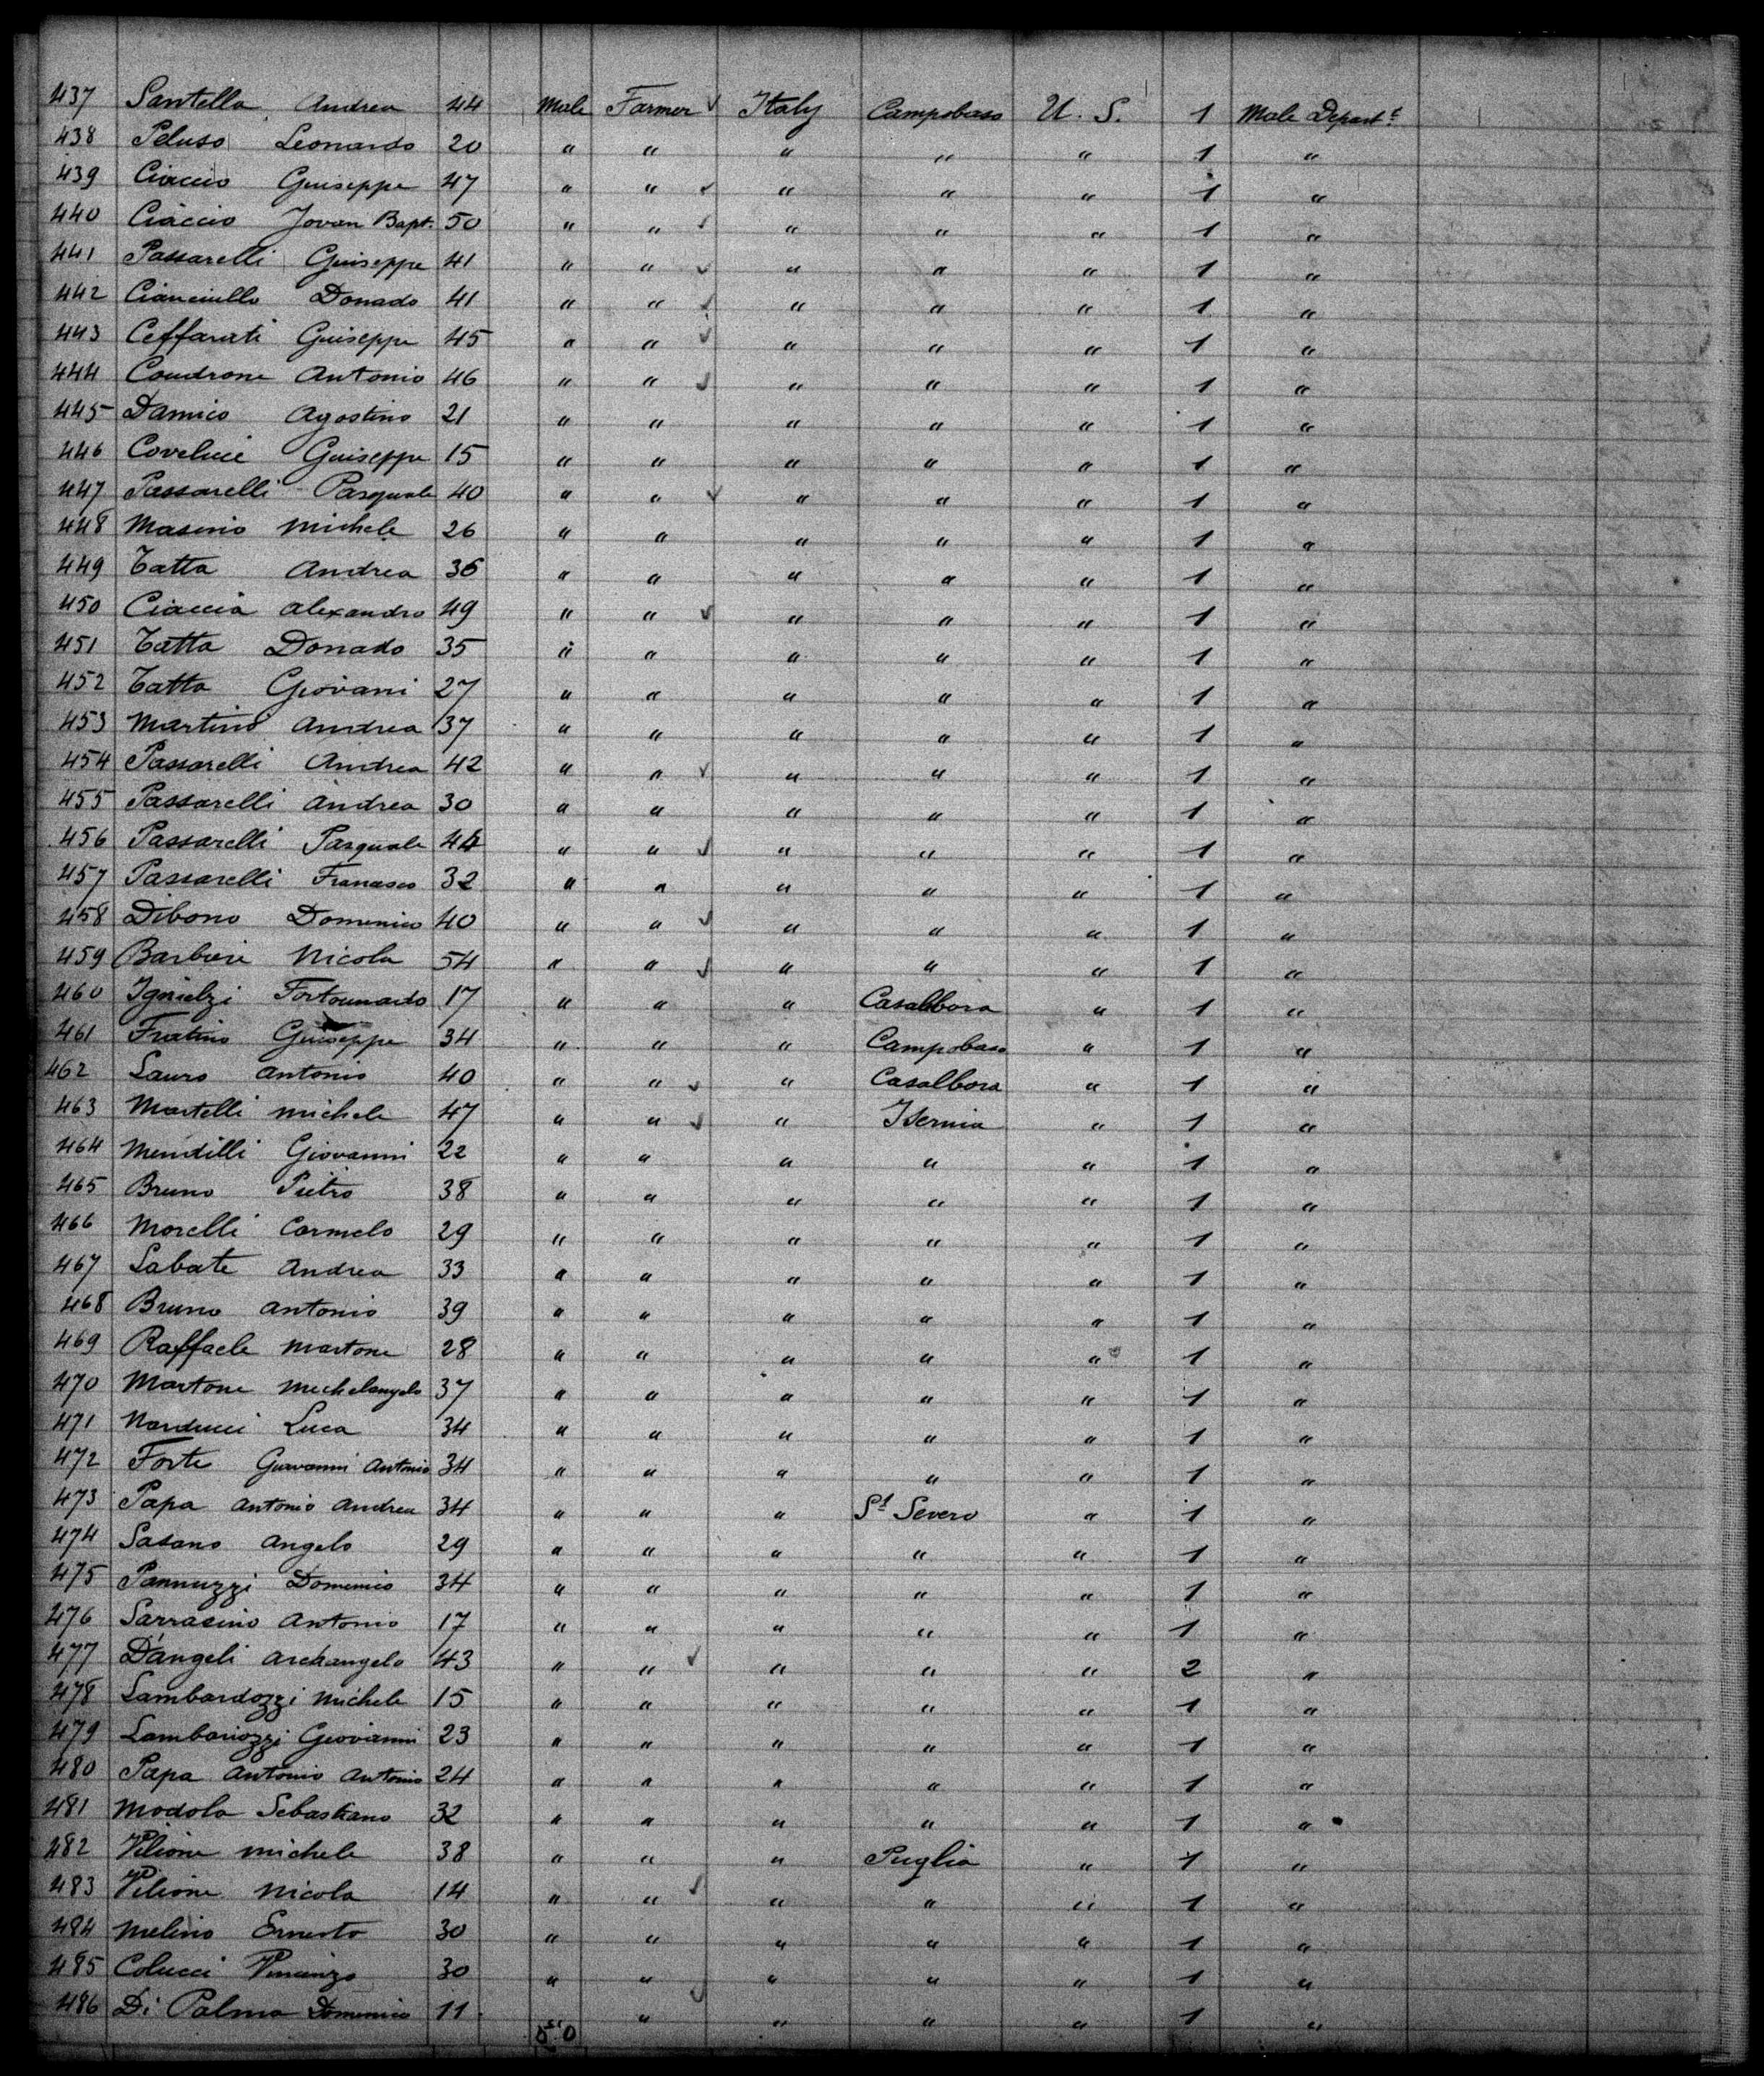 437 Santella Andrea 44 Male Farmer ✓ Italy Campobaso U. S. 1 Male Depart.t
438 Peluso Leonardo 20 " " " " " 1 "
439 Ciaccio Guiseppe 47 " " ✓ " " " 1 "
440 Ciaccio Jovan Bapt. 50 " " ✓ " " " 1 "
441 Passarelli Guiseppe 41 " " ✓ " " " 1 "
442 Cianciullo Donado 41 " " ✓ " " " 1 "
443 Ceffarati Guiseppe 45 " " ✓ " " " 1 "
444 Coudrone Antonio 46 " " ✓ " " " 1 "
445 Damico Agostino 21 " " " " " 1 "
446 Covelucci Guiseppe 15 " " " " " 1 "
447 Passarelli Pasquale 40 " " ✓ " " " 1 "
448 Masino Michele 26 " " " " " 1 "
449 Tatta Andrea 36 " " " " " 1 "
450 Ciaccia Alexandro 49 " " ✓ " " " 1 "
451 Tatta Donado 35 " " " " " 1 "
452 Tatta Giovani 27 " " " " " 1 "
453 Martino Andrea 37 " " " " " 1 "
454 Passarelli Andrea 42 " " ✓ " " " 1 "
455 Passarelli Andrea 30 " " " " " 1 "
456 Passarelli Pasquale 44 " " ✓ " " " 1 "
457 Passarelli Francesco 32 " " " " " 1 "
458 Dibono Domenico 40 " " ✓ " " " 1 "
459 Barbieri Nicola 54 " " ✓ " " " 1 "
460 Fortounardo 17 " " " Casalbora " 1 "
461 Fratino Guiseppe 34 " " " Campobaso " 1 "
462 Lauro Antonio 40 " " ✓ " Casalbora " 1 "
463 Martelli Michele 47 " " ✓ " Isernia " 1 "
464 Mendilli Giovanni 22 " " " " " 1 "
465 Bruno Pietro 38 " " " " " 1 "
466 Morelli Carmelo 29 " " " " " 1 "
467 Labate Andrea 33 " " " " " 1 "
468 Bruno Antonio 39 " " " " " 1 "
469 Raffaele Martone 28 " " " " " 1 "
470 Martone Michelangelo 37 " " " " " 1 "
471 Narducci Luca 34 " " " " " 1 "
472 Forte Giovanni Antonio 34 " " " " " 1 "
473 Papa Antonio Andrea 34 " " " St Severo " 1 "
474 Sasano Angelo 29 " " " " " 1 "
475 Pannuzzi Domenico 34 " " " " " 1 "
476 Sarracino Antonio 17 " " " " " 1 "
477 D'angeli Archangelo 43 " " ✓ " " " 2 "
478 Lambardozzi Michele 15 " " " " " 1 "
479 Lambariozzi Giovanni 23 " " " " " 1 "
480 Papa Antonio Antonio 24 " " " " " 1 "
481 Modola Sebastiano 32 " " " " " 1 "
482 Pilione Michele 38 " " " Puglia " 1 "
483 Pilione Nicola 14 " " ✓ " " " 1 "
484 Melino Ernesto 30 " " " " " 1 "
485 Colucci Vincenzo 30 " " " " " 1 "
486 Di Palma Domenico 11 " " ✓ " " " 1 "
50